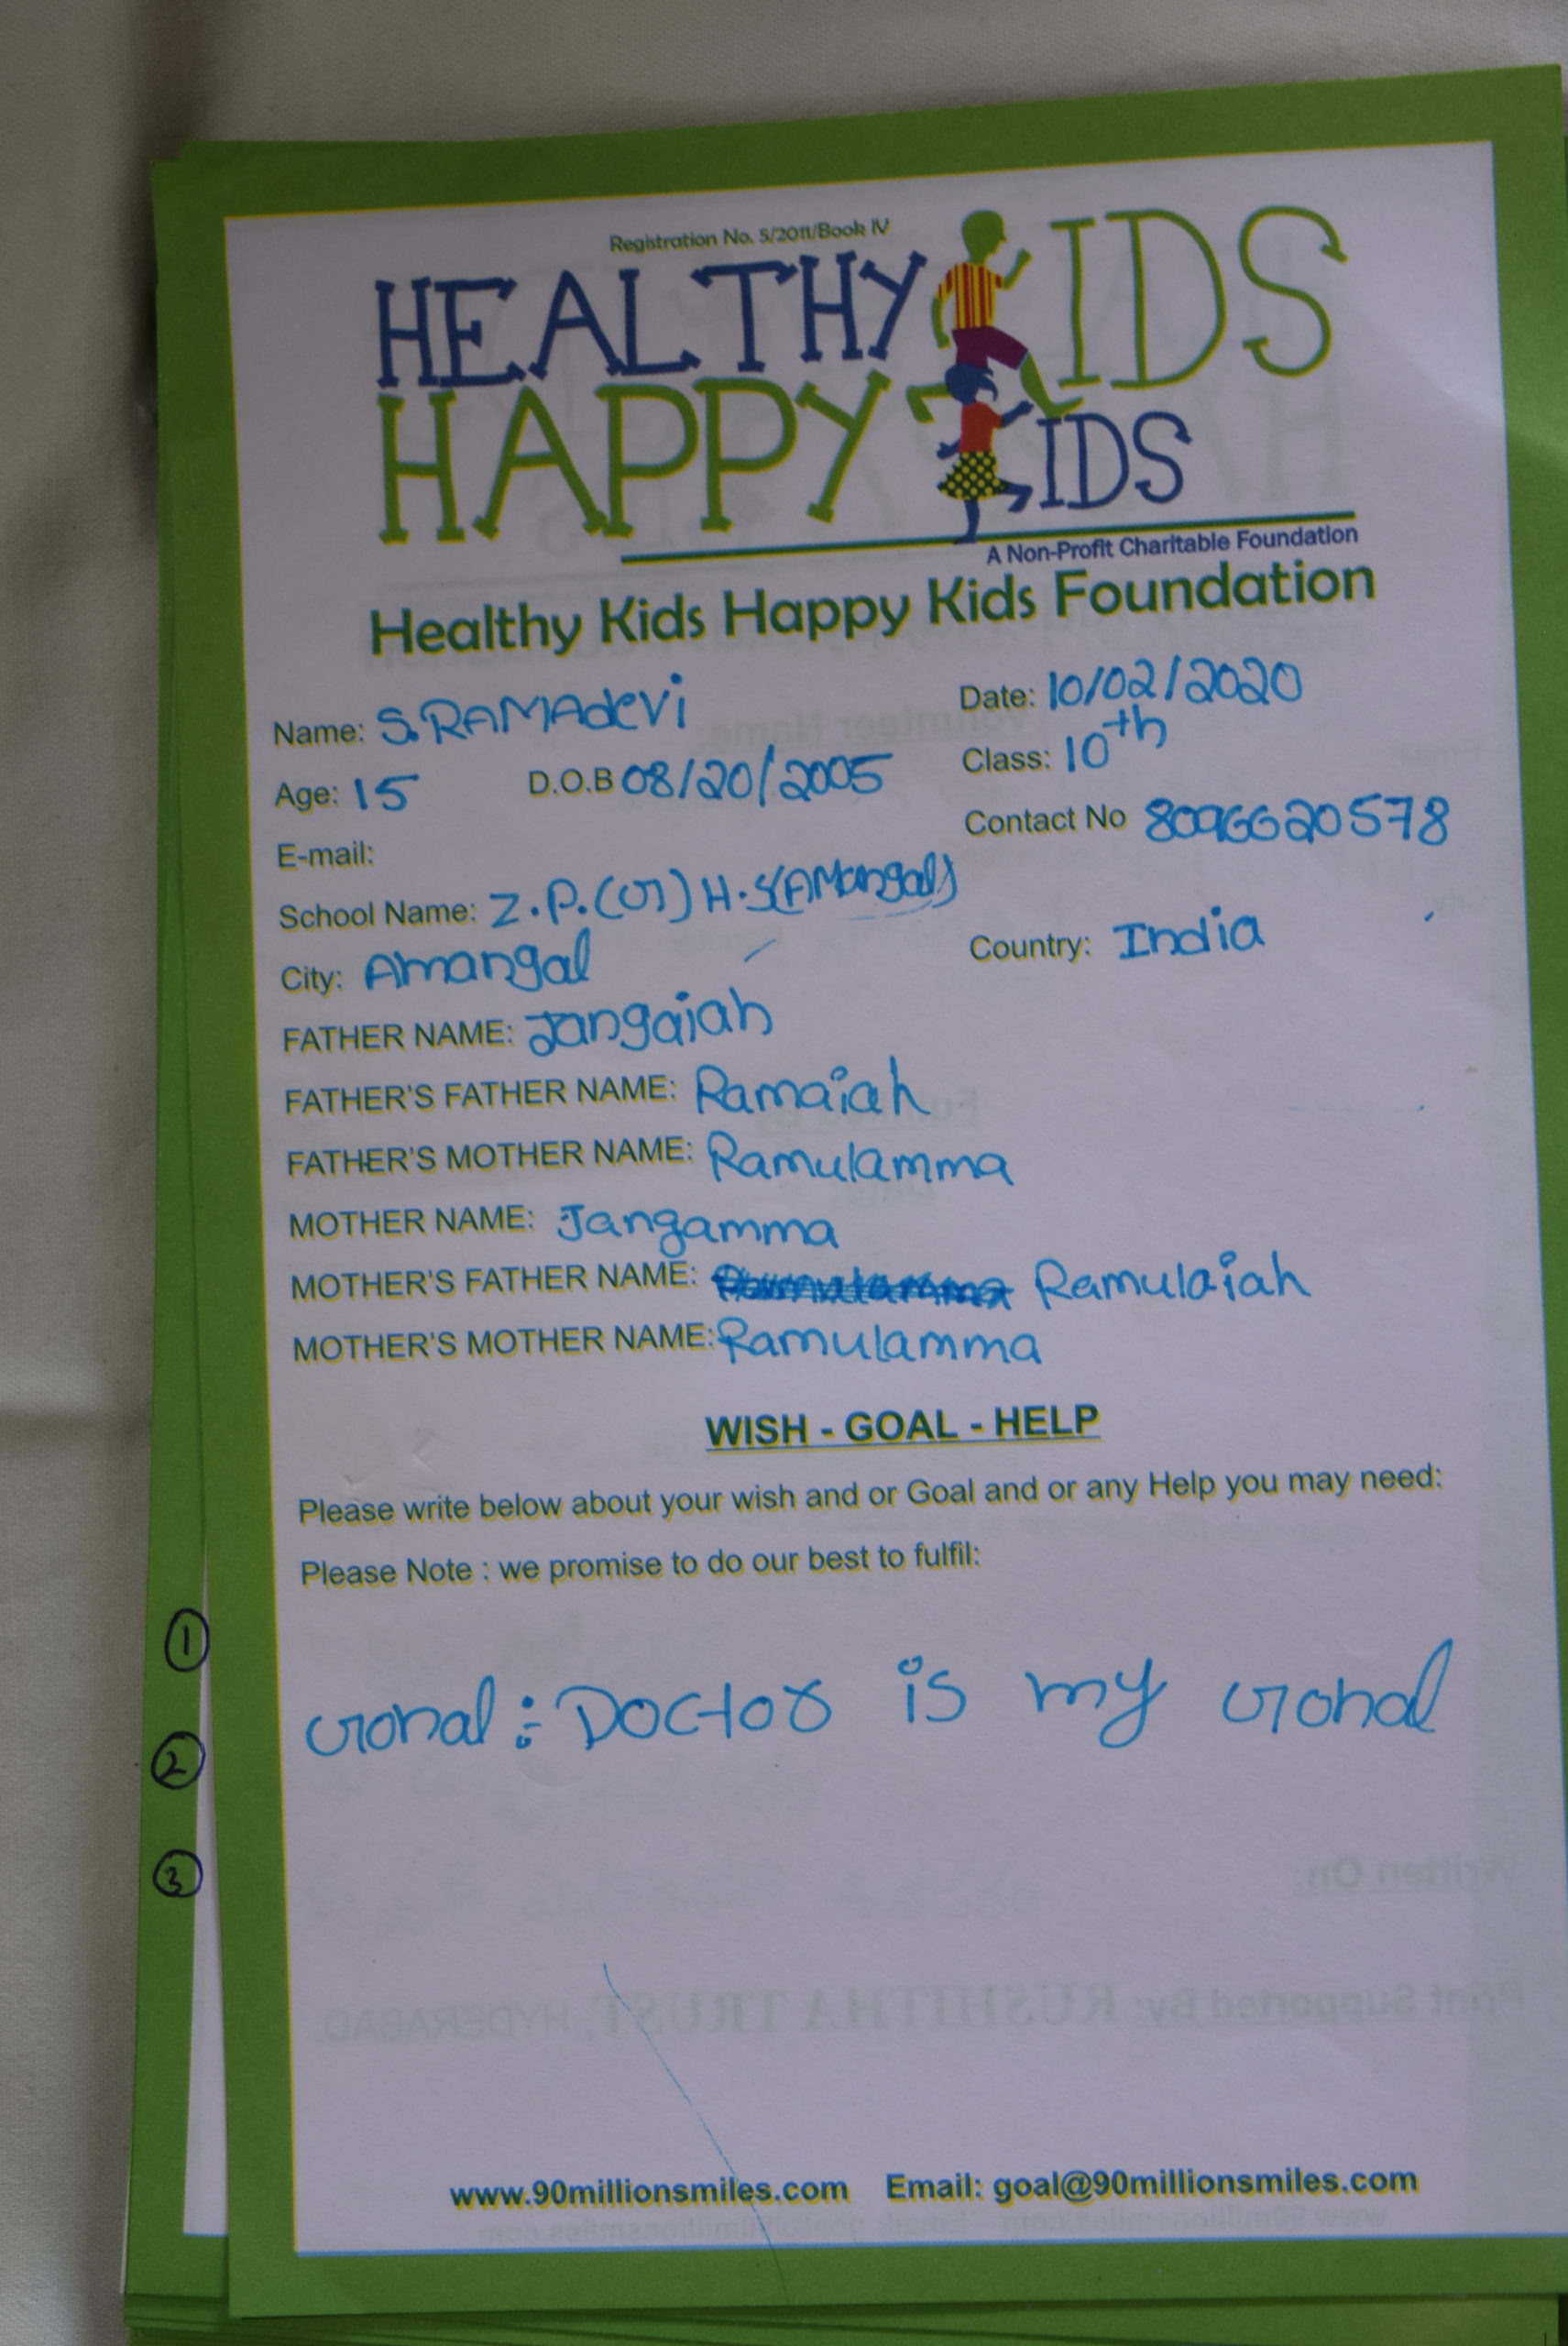 Registration No. 5/2011/Book IV
HEALTHY KIDS
HAPPY KIDS
A Non-Profit Charitable Foundation
Healthy Kids Happy Kids Foundation
Name: S.RAMAdevi Date: 10/02/2020
Age: 15 D.O.B 08/20/2005 Class: 10th
E-mail: Contact No 8096620578
School Name: Z.P.(G) H.S(AMangal)
City: Amangal Country: India
FATHER NAME: Jangaiah
FATHER'S FATHER NAME: Ramaiah
FATHER'S MOTHER NAME: Ramulamma
MOTHER NAME: Jangamma
MOTHER'S FATHER NAME: Ramulaiah
MOTHER'S MOTHER NAME: Ramulamma
WISH - GOAL - HELP
Please write below about your wish and or Goal and or any Help you may need:
Please Note : we promise to do our best to fulfil:
1
Gohal:- Doctor is my Gohal
2
3
www.90millionsmiles.com Email: goal@90millionsmiles.com